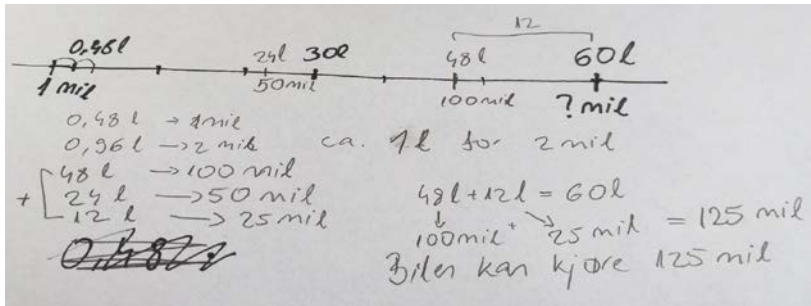 12
0,48l 24l 30l 48l 60l
1 mil 50mil 100mil ? mil
0,48 l → 1mil
0,96l → 2 mil ca. 1l for 2 mil
48 l → 100 mil
+ 24 l → 50 mil 48l + 12l = 60l
12 l → 25 mil 100mil + 25 mil = 125 mil
Bilen kan kjøre 125 mil